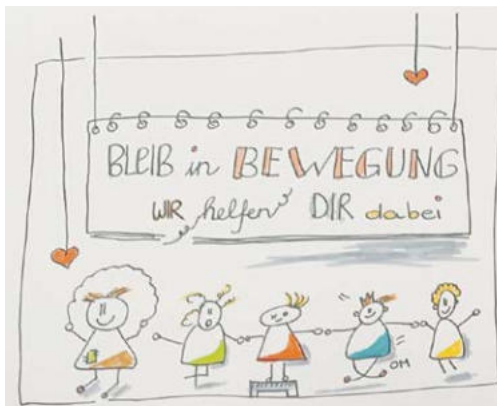 BLEIB in BEWEGUNG
WIR helfen DIR dabei
OM